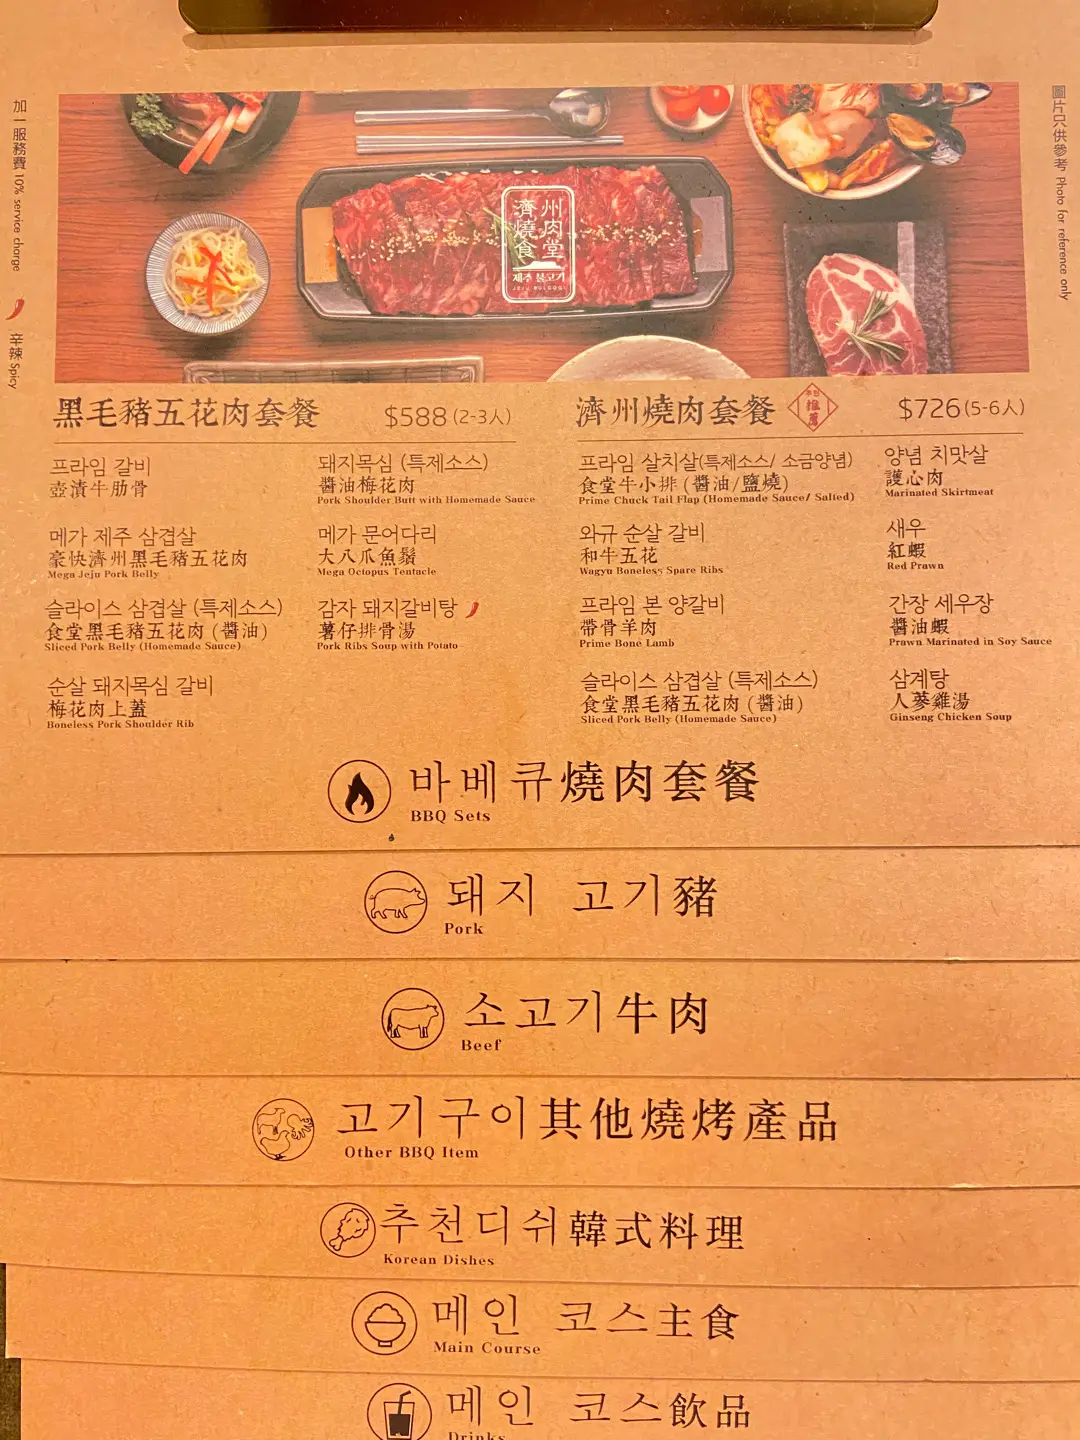 加一服務費 10% service charge
辛辣 Spicy
圖片只供參考 Photo for reference only
濟州
燒肉
食堂
제주 불고기
黑毛豬五花肉套餐 $588 (2-3人)
프라임 갈비
壺漬牛肋骨
메가 제주 삼겹살
豪快濟州黑毛豬五花肉
Mega Jeju Pork Belly
슬라이스 삼겹살 (특제소스)
食堂黑毛豬五花肉 (醬油)
Sliced Pork Belly (Homemade Sauce)
순살 돼지목심 갈비
梅花肉上蓋
Boneless Pork Shoulder Rib
돼지목심 (특제소스)
醬油梅花肉
Pork Shoulder Butt with Homemade Sauce
메가 문어다리
大八爪魚鬚
Mega Octopus Tentacle
감자 돼지갈비탕
薯仔排骨湯
Pork Ribs Soup with Potato
濟州燒肉套餐 추천 推薦 $726 (5-6人)
프라임 살치살(특제소스/ 소금양념)
食堂牛小排 (醬油/鹽燒)
Prime Chuck Tail Flap (Homemade Sauce/ Salted)
와규 순살 갈비
和牛五花
Wagyu Boneless Spare Ribs
프라임 본 양갈비
帶骨羊肉
Prime Bone Lamb
슬라이스 삼겹살 (특제소스)
食堂黑毛豬五花肉 (醬油)
Sliced Pork Belly (Homemade Sauce)
양념 치맛살
護心肉
Marinated Skirtmeat
새우
紅蝦
Red Prawn
간장 세우장
醬油蝦
Prawn Marinated in Soy Sauce
삼계탕
人蔘雞湯
Ginseng Chicken Soup
바베큐燒肉套餐
BBQ Sets
돼지 고기豬
Pork
소고기牛肉
Beef
고기구이其他燒烤產品
Other BBQ Item
추천디쉬韓式料理
Korean Dishes
메인 코스主食
Main Course
메인 코스飲品
Drinks